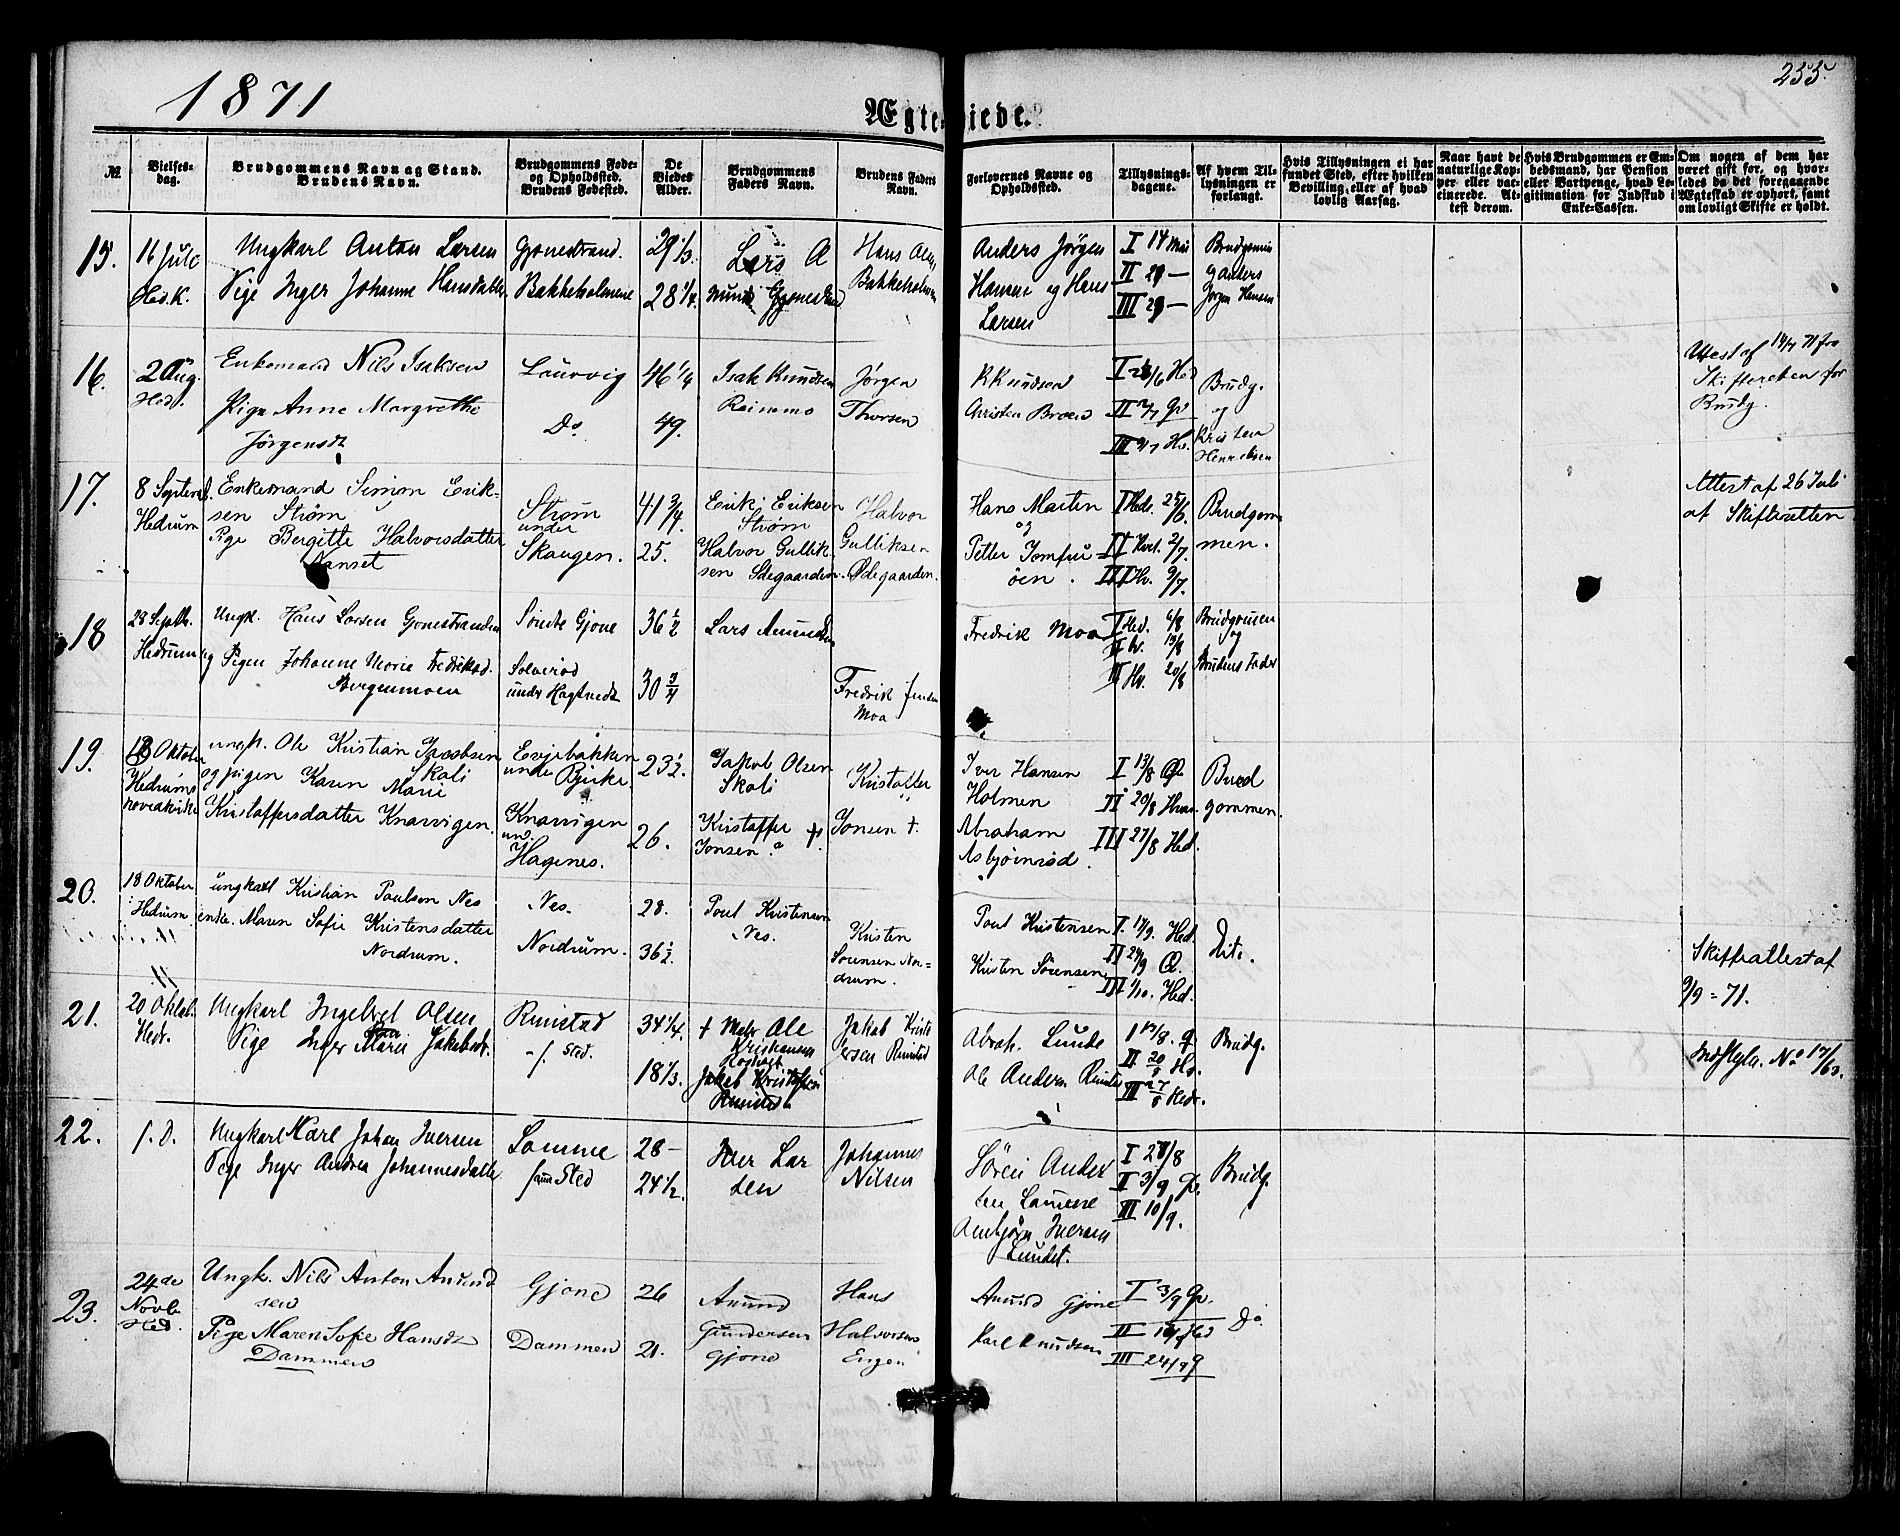 1871
Ægteviede.
255.
№
Vielses-
dag.
Brudgommens Navn og Stand.
Brudens Navn.
Brudgommens Føde-
og Opholdssted.
Brudens Fødested.
De
Viedes
Alder.
Brudgommens
Faders Navn.
Brudens Faders
Navn.
Forlovernes Navne og
Opholdssted.
Tillysnings-
dagene.
Af hvem Til-
lysningen er
forlangt.
Hvis Tillysningen ei har
fundet Sted, efter hvilken
Bevilling eller af hvad
lovlig Aarsag.
Naar havt de
naturlige Kop-
per eller vac-
cinerede. At-
test derom.
Hvis Brudgommen er Em-
bedsmand, har Pension
eller Vartpenge, hvad Le-
gitimation for Indskud i
Enke-Cassen.
Om nogen af dem har
været gift før, og hvor-
ledes da det foregaaende
Ægteskab er ophørt, samt
om lovligt Skifte er holdt.
15.
16 Juli
Hed. K.
Ungkarl Anton Larsen
Pige Inger Johanne Hansdatter
Gjonestrand.
Bakkeholmene
29 1/3.
28 1/4.
Lars A
mund Gjonestrand
Hans
Bakkeholmen
Anders Jørgen
Hansen og Hans
Larsen
I 14 Mai
II 21 —
III 29 —
Brudgommen
og Anders
Jørgen Hansen
16.
2 Aug.
Hed.
Enkemand Nils Isaksen
Pige Anne Margrethe
Jørgensdt
Laurvig
Do
46 1/4
49.
Isak Knudsen
Jørgen
Thorsen
K Knudsen
Christen
I /6 Hed
II 2/7 Qv
III 9/7 Hv.
Brudg.
og
Kristen
Henriksen
Attest af 14/7 71 fra
Skifteretten for
Brudg.
17.
8 Septembr.
Hedrum
Enkemand Simon Erik-
sen Strøm
Pige Bergitte Halvorsdatter
Strøm
under
Skaugen.
41 3/4.
25.
Erik Eriksen
Strøm
Halvor Gullik-
sen Ødegaarden.
Halvor
Gulliksen
Ødegaarden.
Hans Martin
og
Petter Jomfru-
øen.
I Hedr. 25/6.
II Kvel. 2/7.
III Hv. 9/7.
Brudgom-
men.
Attest af 26 Juli
af Skifteretten
18
28 Septbr.
Hedrum
Ungk. Hans Larsen Gjonestranden
og Pigen Johanne Marie Fredriksd.
Bergenmoen
Søndre Gjone
Solverød
under Hagtvedt
36 1/2
30 3/4
Lars Amundsen
Fredrik Jensen
Moa
Fredrik Moa
I Hed. 6/8
II Qv. 13/8
III Hv. 20/8
Brudgommen
og
Brudens Fader
19.
18 Oktober
Hedrums
hovedkirke
ungk. Ole Kristian Jacobsen
Skali
og pigen Karen Marie
Kristoffersdatter Knarvigen.
Evjebakken
under Bjerke
Knarvigen
un.
Hagenes.
23 1/2.
26.
Jakob Olsen
Skali
Kristoffer
Jonsen. †.
Kristoffer
Jonsen †.
Iver Hansen
Holmen
Abraham
Asbjørnrød.
I 13/8 Qv
II 20/8 Hvar.
III 27/8 Hed.
Brud
gommen.
20.
18 Oktober
Hedrum
ungkarl Kristian Paulsen Nes
enke. Maren Sofie Kristensdatter
Nordrum.
Nes.
Nordrum.
28.
36 1/2.
Poul Kristensen
Nes.
Kristen
Sørensen Nor-
drum.
Poul Kristensen
Kristen Sørensen
I. 17/9. Hed.
II 24/9 Q.
III 1/10. Hed.
Dito.
Skifteattest af
9/9 = 71.
21.
20 Oktob.
Hedr.
Ungkarl Ingebret Olsen
Pige Inger Marie Jakobsdt.
Rimstad
s. Sted.
34 1/4.
18 1/3.
Ole
Kristiansen
Jakob Kristofersen
Rimstad
Jakob Krist
fersen Rimstad
Abrah. Lunde
Ole Andersn Rimstad
I 13/8. Q
II 20/8 Hv.
III 27/8 Hedr.
Brudg.
Indflytn. No 17/63.
22.
s. D.
Ungkarl Karl Johan Iversen
Pige Inger Andrea Johannesdatter
Lamme
samSted
28 —
24 1/2.
Iver Lar
sen
Johannes
Nilsen
Søren Ander
sen Lamme
Ambjørn Iversen
Lundet.
I 27/8
II 3/9 Q.
III 10/9.
Brudg.
23.
24de
Novb.
Hed.
Ungk. Nils Anton Amund
sen
Pige Maren Sofie Hansdt
Dammen
Gjone
Dammen
26
21.
Amund
Gundersen
Gjone
Hans
Halvorsen
Engen
Amund Gjone
Karl Knudsen
I 3/9 Qv.
II 10/9 Hed
III 24/9 Q
Do